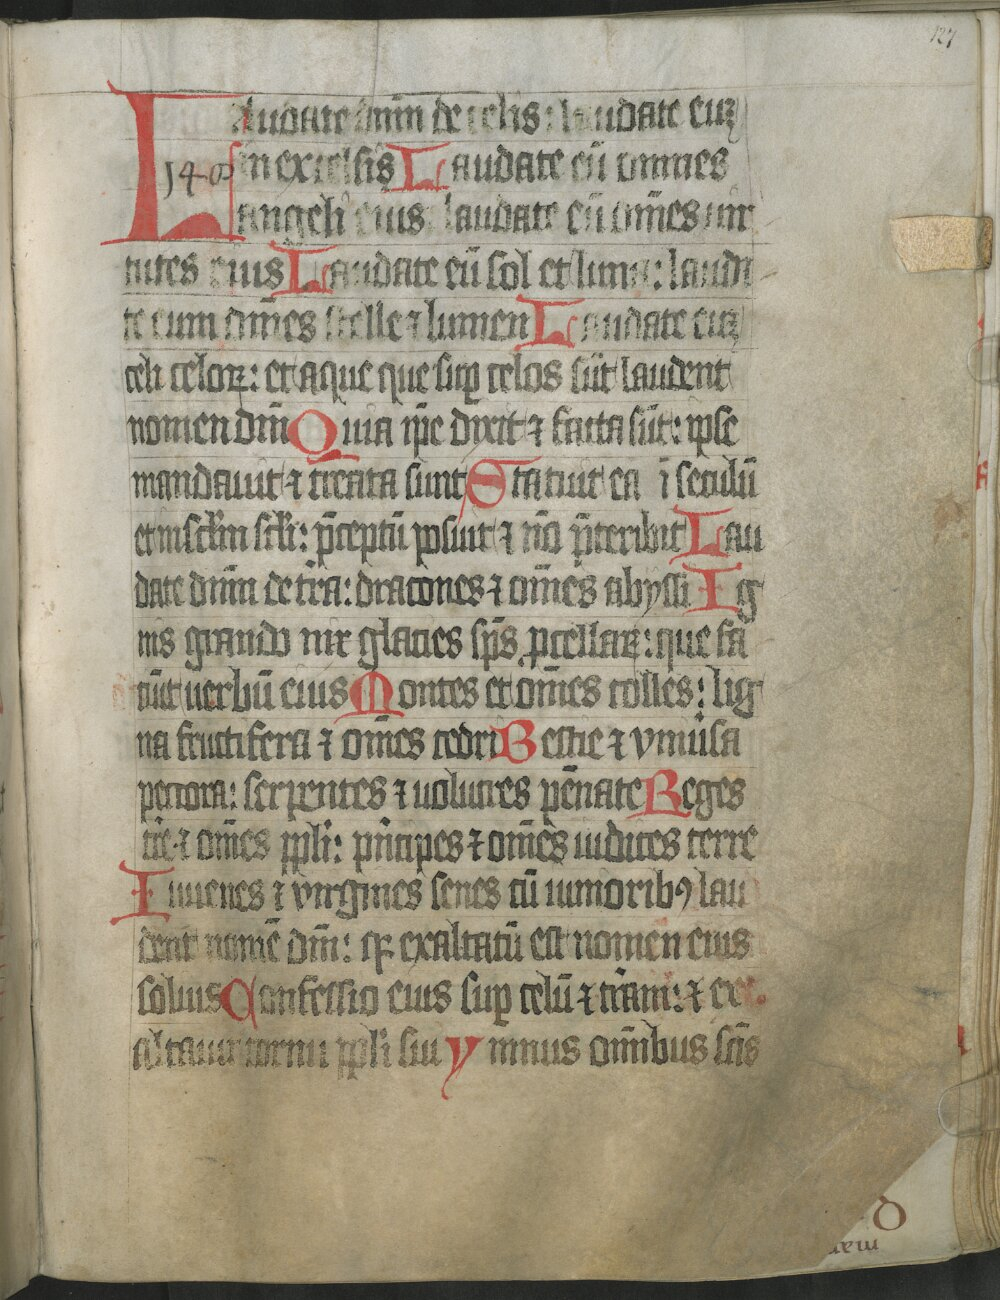 127
Laudate dnm̄ de celis: laudate euꝫ
148 in excelsis Laudate eū omnes
angeli eius: laudate eū om̄es uir
tutes eius Laudate eū sol et luna: lauda
te eum om̄es stelle ⁊ lumen Laudate euꝫ
celi celoꝝ: et aque que suꝑ celos sūt laudent
nomen dm̄ Quia ip̄e dixit ⁊ facta sūt: ipse
mandauit ⁊ creata sunt Statuit ea ī seculū
et in sclm̄ scli: p̄ceptū posuit ⁊ nō p̄teribit Lau
date dnm̄ de tr̄a: dracones ⁊ om̄es abyssi Ig
nis grando nix glacies sp̄s ꝓcellaꝝ: que fa
ciūt uerbū eius Montes et om̄es colles: lig
na fructifera ⁊ om̄es cedri Bestie ⁊ vniūsa
pecora: serpentes ⁊ uolucres pēnate Reges
tr̄e ⁊ om̄es ppli: pn̄cipes ⁊ om̄es iudices terre
Iuuenes ⁊ virgines senes cū iunioribꝰ lau
dent nomē dm̄: qꝛ exaltatū est nomen eius
solius Confessio eius suꝑ celū ⁊ tr̄am: ⁊ ex
altauit cornu ppli sui ymnus om̄ibus scīs